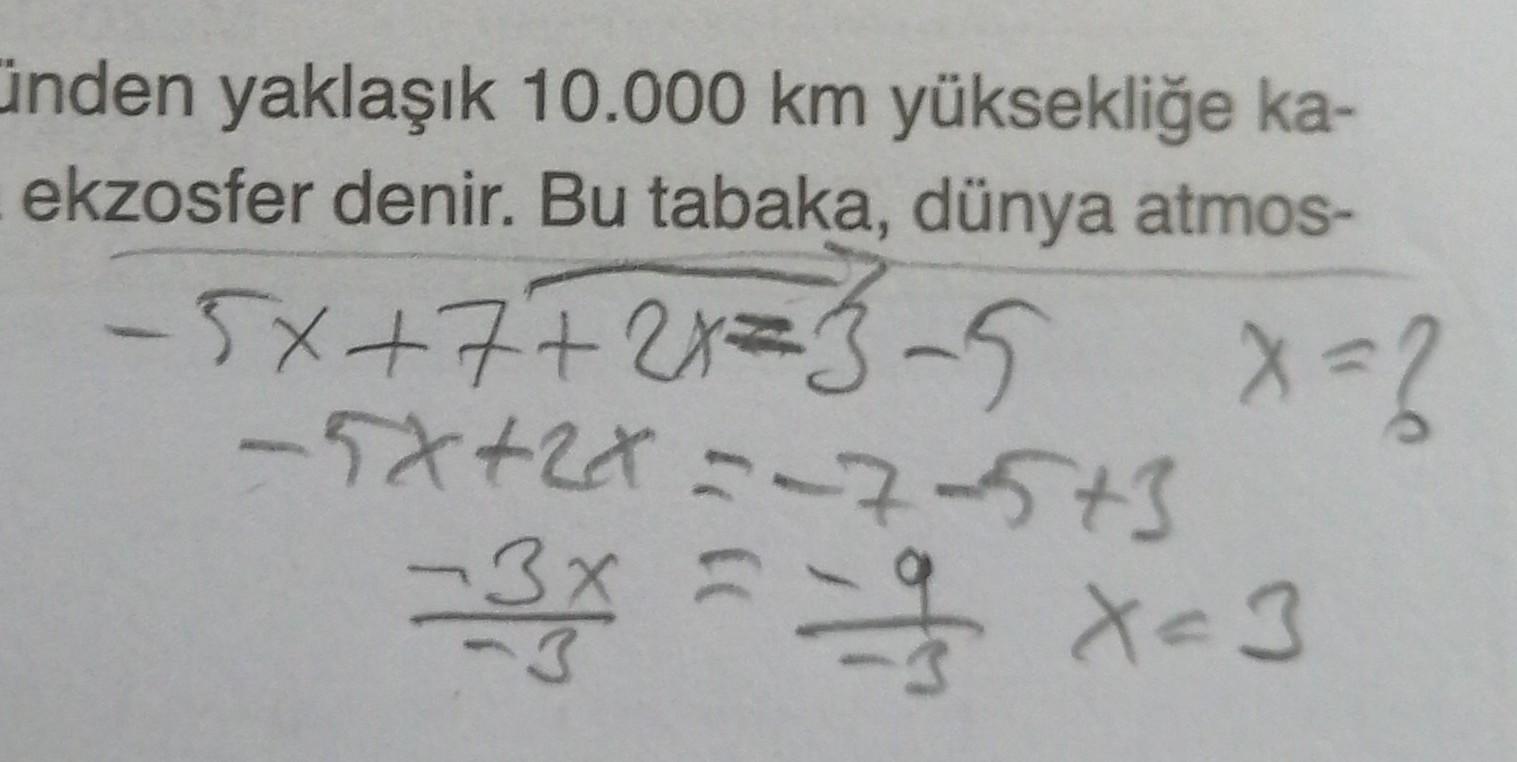 ünden yaklaşık 10.000 km yüksekliğe ka-
ekzosfer denir. Bu tabaka, dünya atmos-
-5x+7+2x=3-5 x=?
-5x+2x=-7-5+3
-3x/-3 = -9/-3 x=3